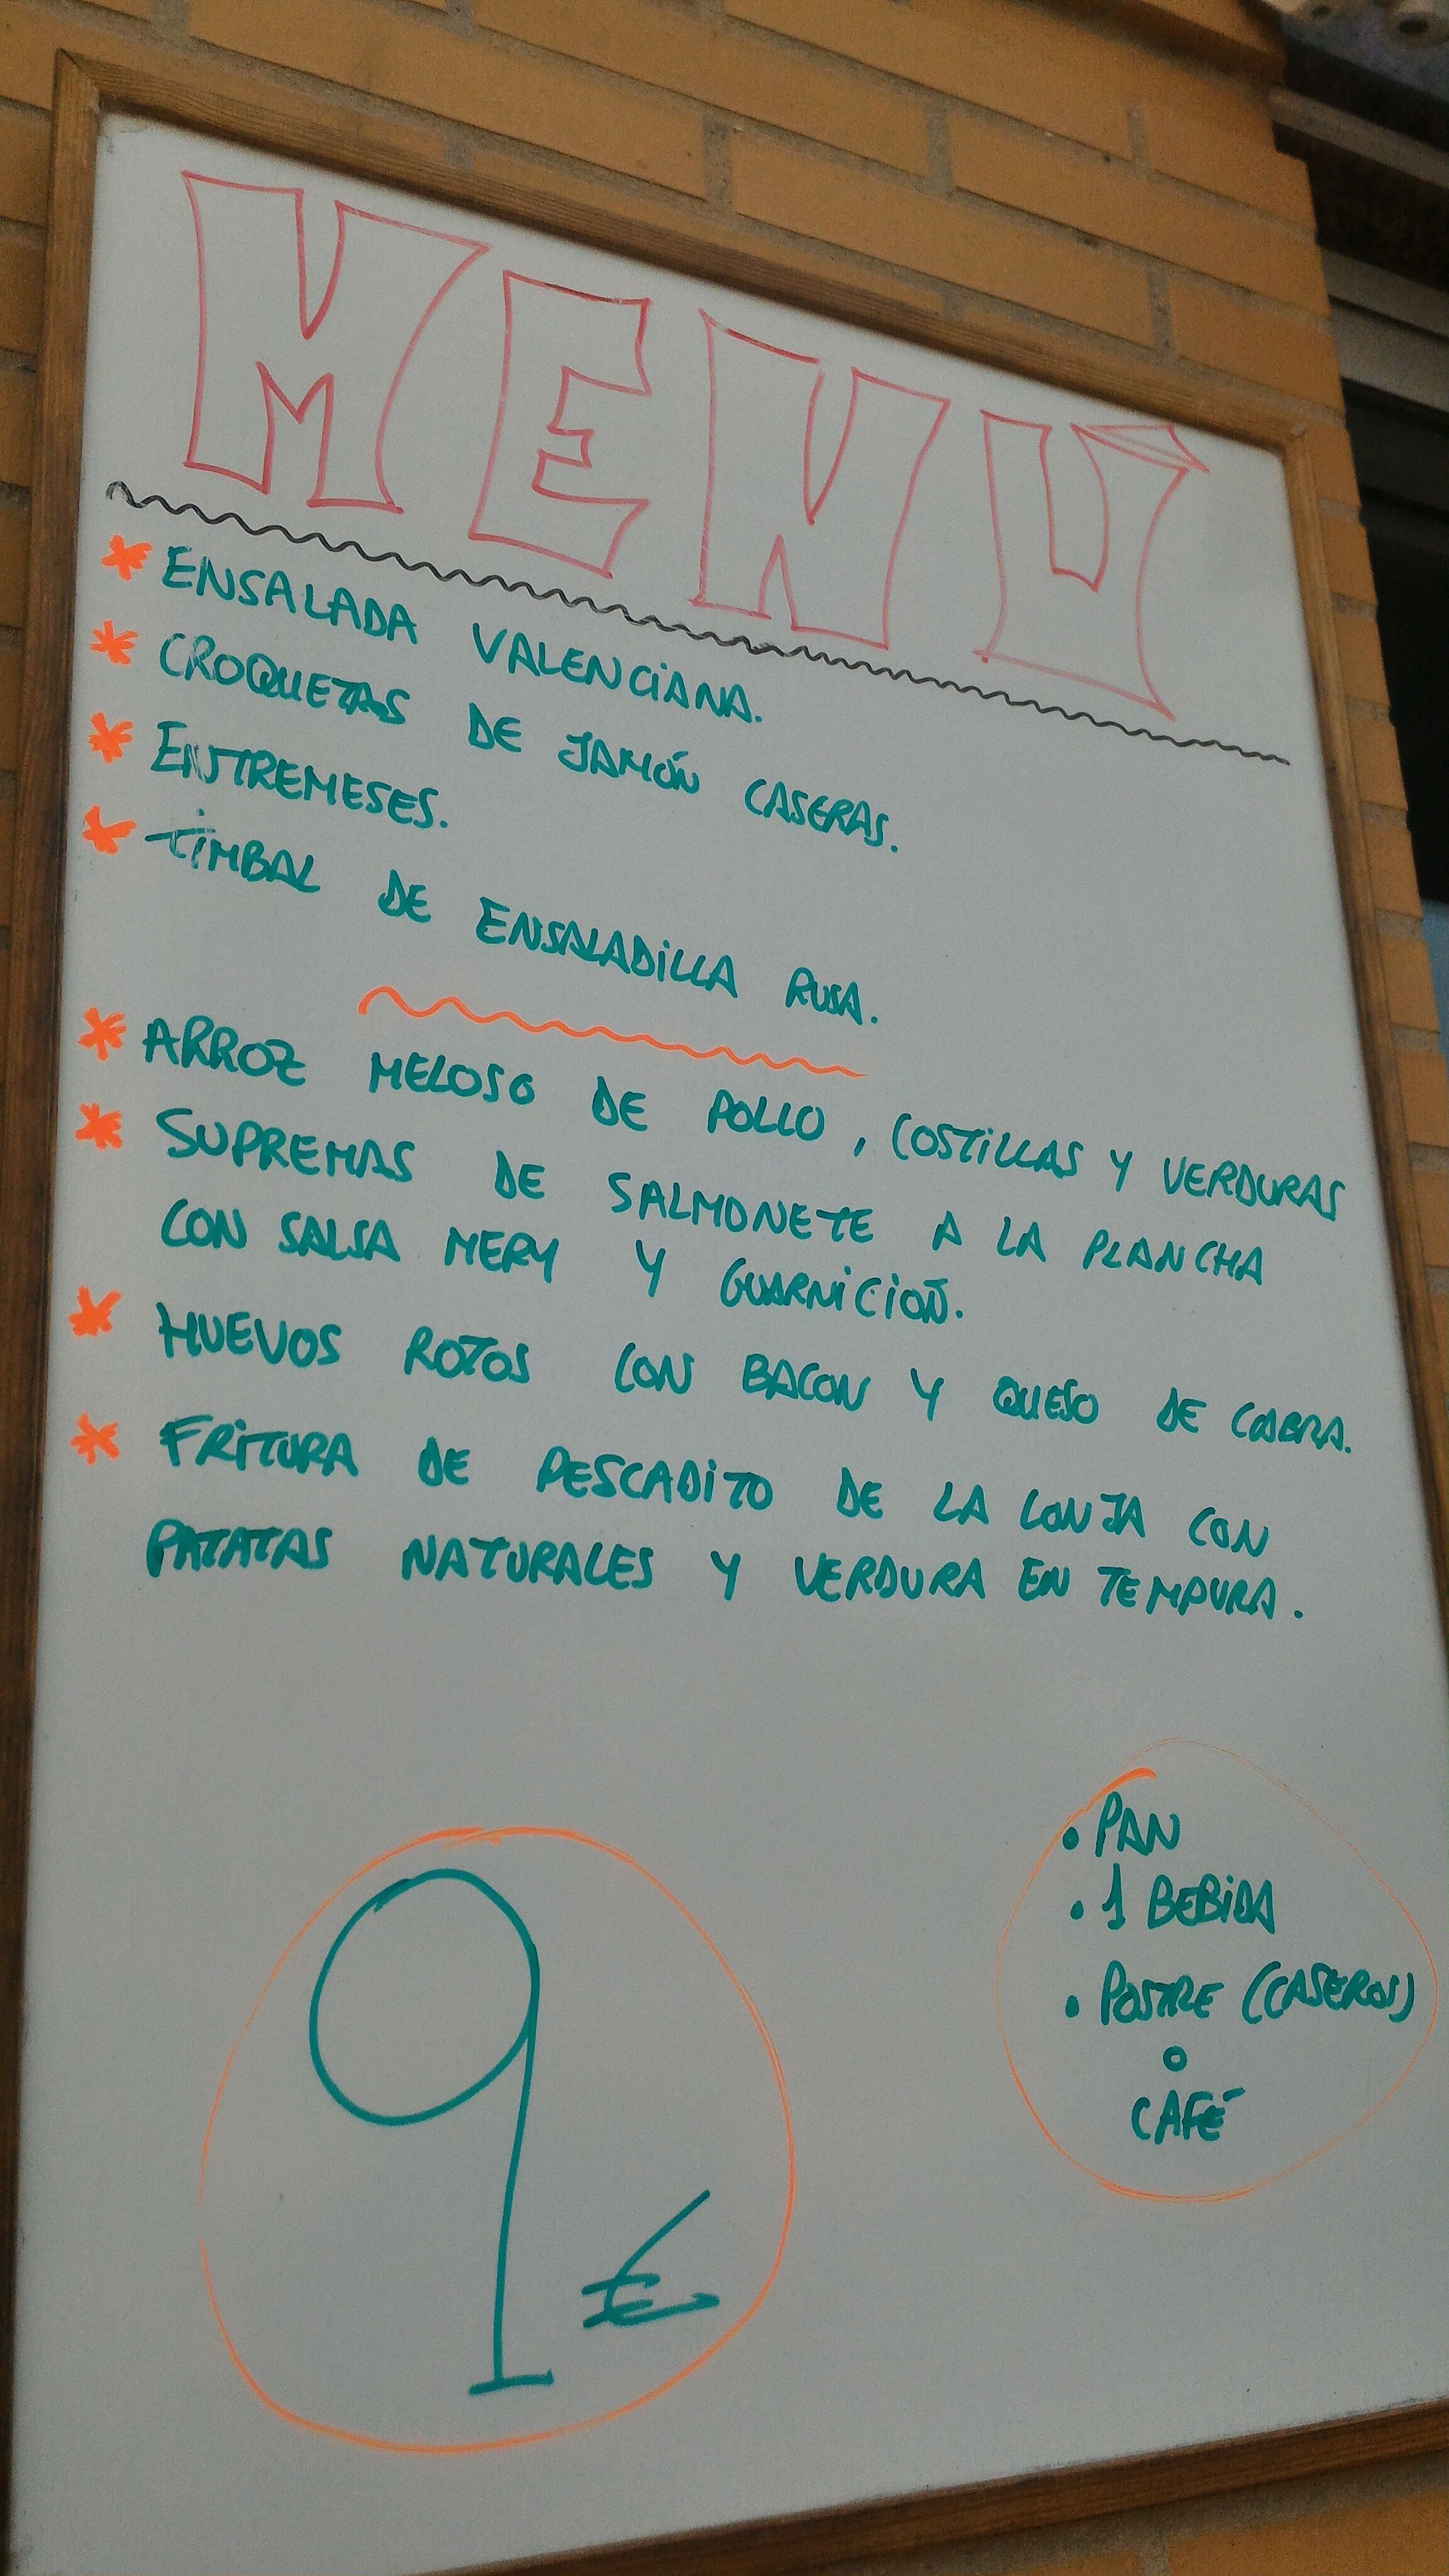 MENÚ
* ENSALADA VALENCIANA.
* CROQUETAS DE JAMÓN CASERAS.
* ENTREMESES.
* TIMBAL DE ENSALADILLA RUSA.
* ARROZ MELOSO DE POLLO, COSTILLAS Y VERDURAS
* SUPREMAS DE SALMONETE A LA PLANCHA
CON SALSA MERY Y GUARNICIÓN.
* HUEVOS ROTOS CON BACON Y QUESO DE CABRA.
* FRITURA DE PESCADITO DE LA LONJA CON
PATATAS NATURALES Y VERDURA EN TEMPURA.
• PAN
• 1 BEBIDA
• POSTRE (CASEROS)
O
CAFÉ
9 €